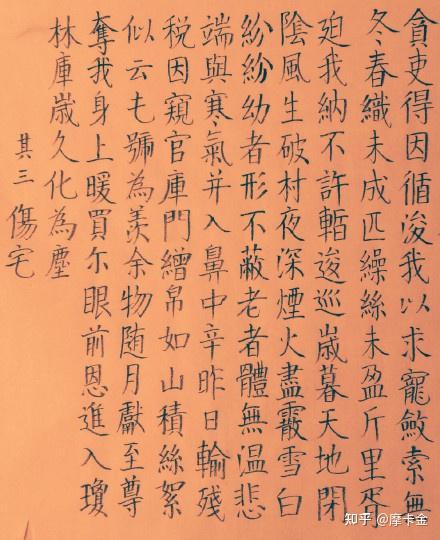 貪吏得因循浚我以求寵斂索無
冬春織未成匹繰絲未盈斤里胥
迫我納不許暫逡巡嵗暮天地閉
陰風生破村夜深煙火盡霰雪白
紛紛幼者形不蔽老者體無温悲
端與寒氣并入鼻中辛昨日輸殘
税因窺官庫門繒帛如山積絲絮
似云屯號為羨余物随月獻至尊
奪我身上暖買尔眼前恩進入瓊
林庫嵗久化為塵
其三 傷宅
知乎 @摩卡金